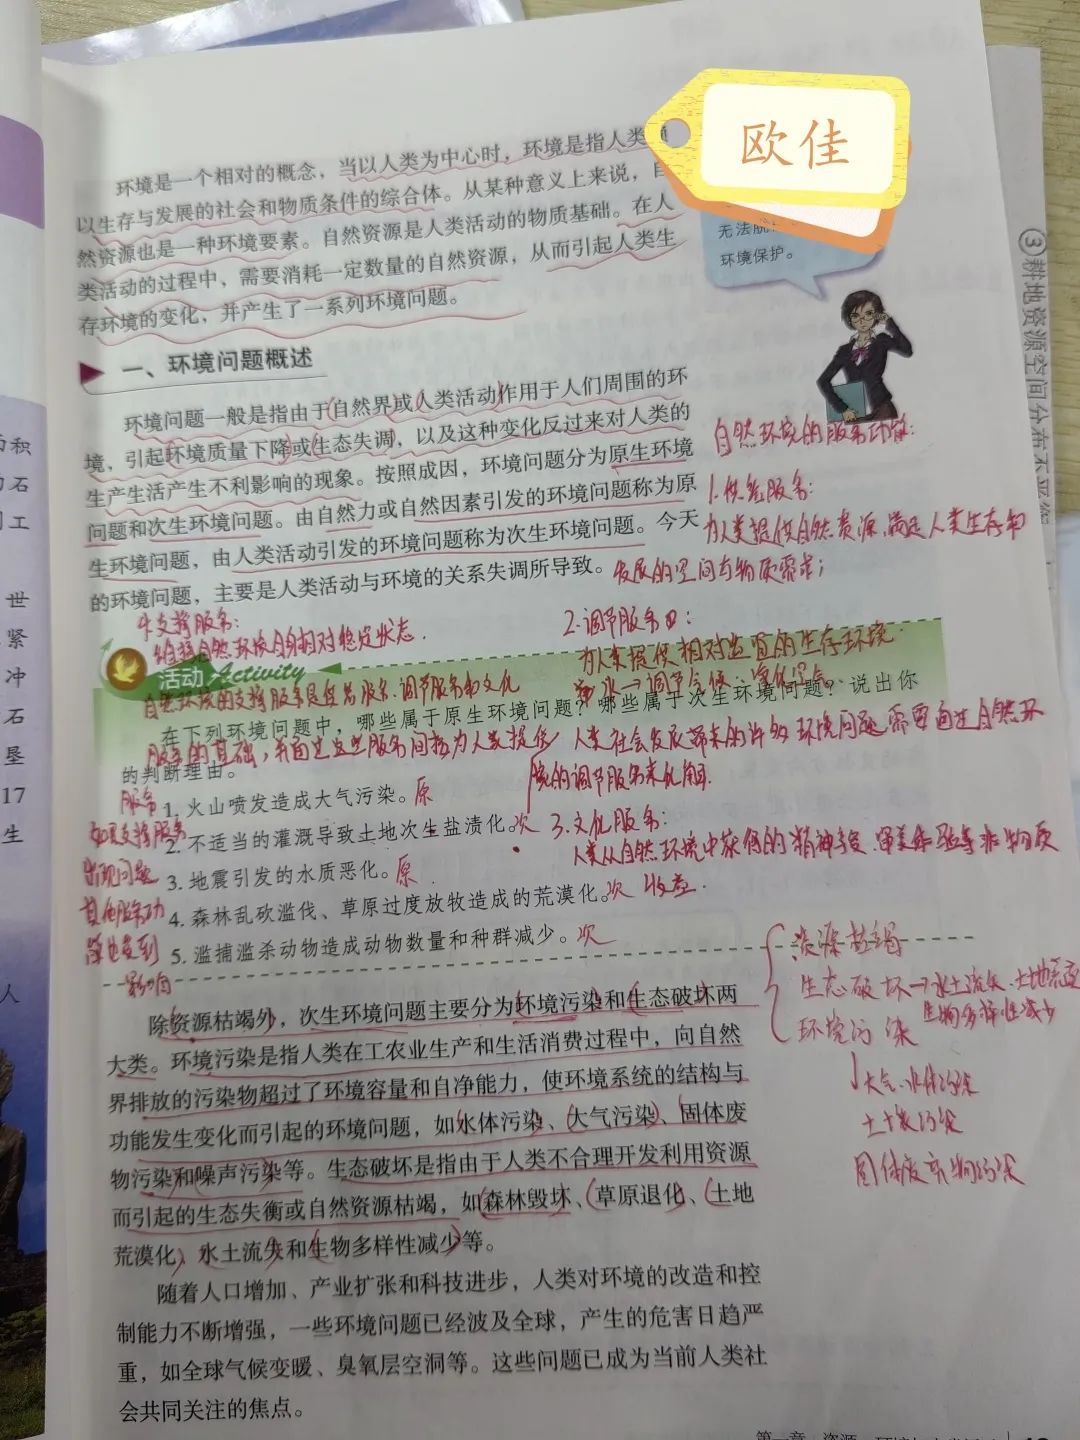 欧佳
环境是一个相对的概念，当以人类为中心时，环境是指人类
以生存与发展的社会和物质条件的综合体。从某种意义上来说，自
然资源也是一种环境要素。自然资源是人类活动的物质基础。在人
类活动的过程中，需要消耗一定数量的自然资源，从而引起人类生
存环境的变化，并产生了一系列环境问题。
无法脱
环境保护。
一、环境问题概述
环境问题一般是指由于自然界或人类活动作用于人们周围的环
境，引起环境质量下降或生态失调，以及这种变化反过来对人类的
生产生活产生不利影响的现象。按照成因，环境问题分为原生环境
问题和次生环境问题。由自然力或自然因素引发的环境问题称为原
生环境问题，由人类活动引发的环境问题称为次生环境问题。今天
的环境问题，主要是人类活动与环境的关系失调所导致。
自然环境的服务功能：
1.供给服务：
为人类提供自然资源，满足人类生存和
发展的空间与物质需求；
2.调节服务：
为人类提供相对适宜的生存环境
水→调节气候、净化空气
人类社会发展带来的许多环境问题需要通过自然环
境的调节服务来化解
3.文化服务：
人类从自然环境中获得的精神享受、审美体验等非物质
收益.
4.支撑服务：
维持自然环境自身相对稳定状态.
自然环境的支撑服务是供给服务、调节服务和文化
服务的基础，并通过这些服务间接为人类提供
服务
如果支撑服务
出现问题
其他服务功
能也受到
影响
活动 Activity
在下列环境问题中，哪些属于原生环境问题？哪些属于次生环境问题？说出你
的判断理由。
1. 火山喷发造成大气污染。原
2. 不适当的灌溉导致土地次生盐渍化。次
3. 地震引发的水质恶化。原
4. 森林乱砍滥伐、草原过度放牧造成的荒漠化。次
5. 滥捕滥杀动物造成动物数量和种群减少。次
资源枯竭
生态破坏→水土流失、土地荒漠
生物多样性减少
环境污染
大气、水体污染
土壤污染
固体废弃物污染
除资源枯竭外，次生环境问题主要分为环境污染和生态破坏两
大类。环境污染是指人类在工农业生产和生活消费过程中，向自然
界排放的污染物超过了环境容量和自净能力，使环境系统的结构与
功能发生变化而引起的环境问题，如水体污染、大气污染、固体废
物污染和噪声污染等。生态破坏是指由于人类不合理开发利用资源
而引起的生态失衡或自然资源枯竭，如森林毁坏、草原退化、土地
荒漠化、水土流失和生物多样性减少等。
随着人口增加、产业扩张和科技进步，人类对环境的改造和控
制能力不断增强，一些环境问题已经波及全球，产生的危害日趋严
重，如全球气候变暖、臭氧层空洞等。这些问题已成为当前人类社
会共同关注的焦点。
③耕地资源空间分布不平衡
积
石
工
世
紧
冲
石
垦
17
生
人